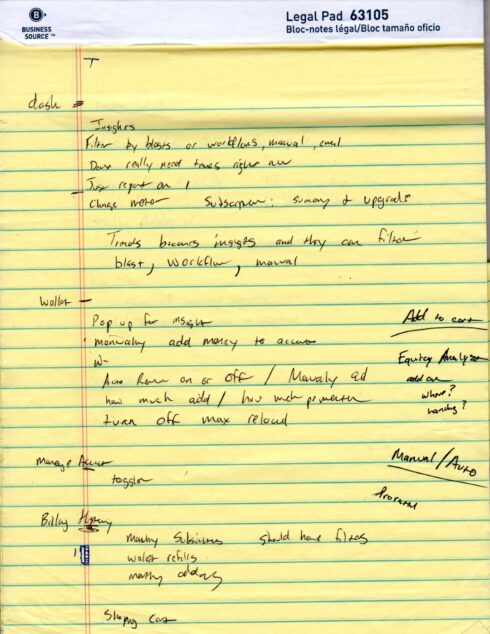 BUSINESS SOURCE™
Legal Pad 63105
Bloc-notes légal/Bloc tamaño oficio
T
dash
Insights
Filter by blasts or workflows, manual, email
Dont really need trends right now
Just report on 1
Change meter Subscription: summary & upgrade
Trends becomes insights and they can filter
blast, workflow, manual
wallet -
Pop up for insight
Add to cart
manually add money to account
Equity Analyzer
add on
where?
Auto Renew on or off / Manually add
how much add / how much
turn off max reload
Manage Account
Manual/Auto
toggle
Billing History
Monthly Subscriptions should have filters
wallet refills
monthly
Shopping Cart